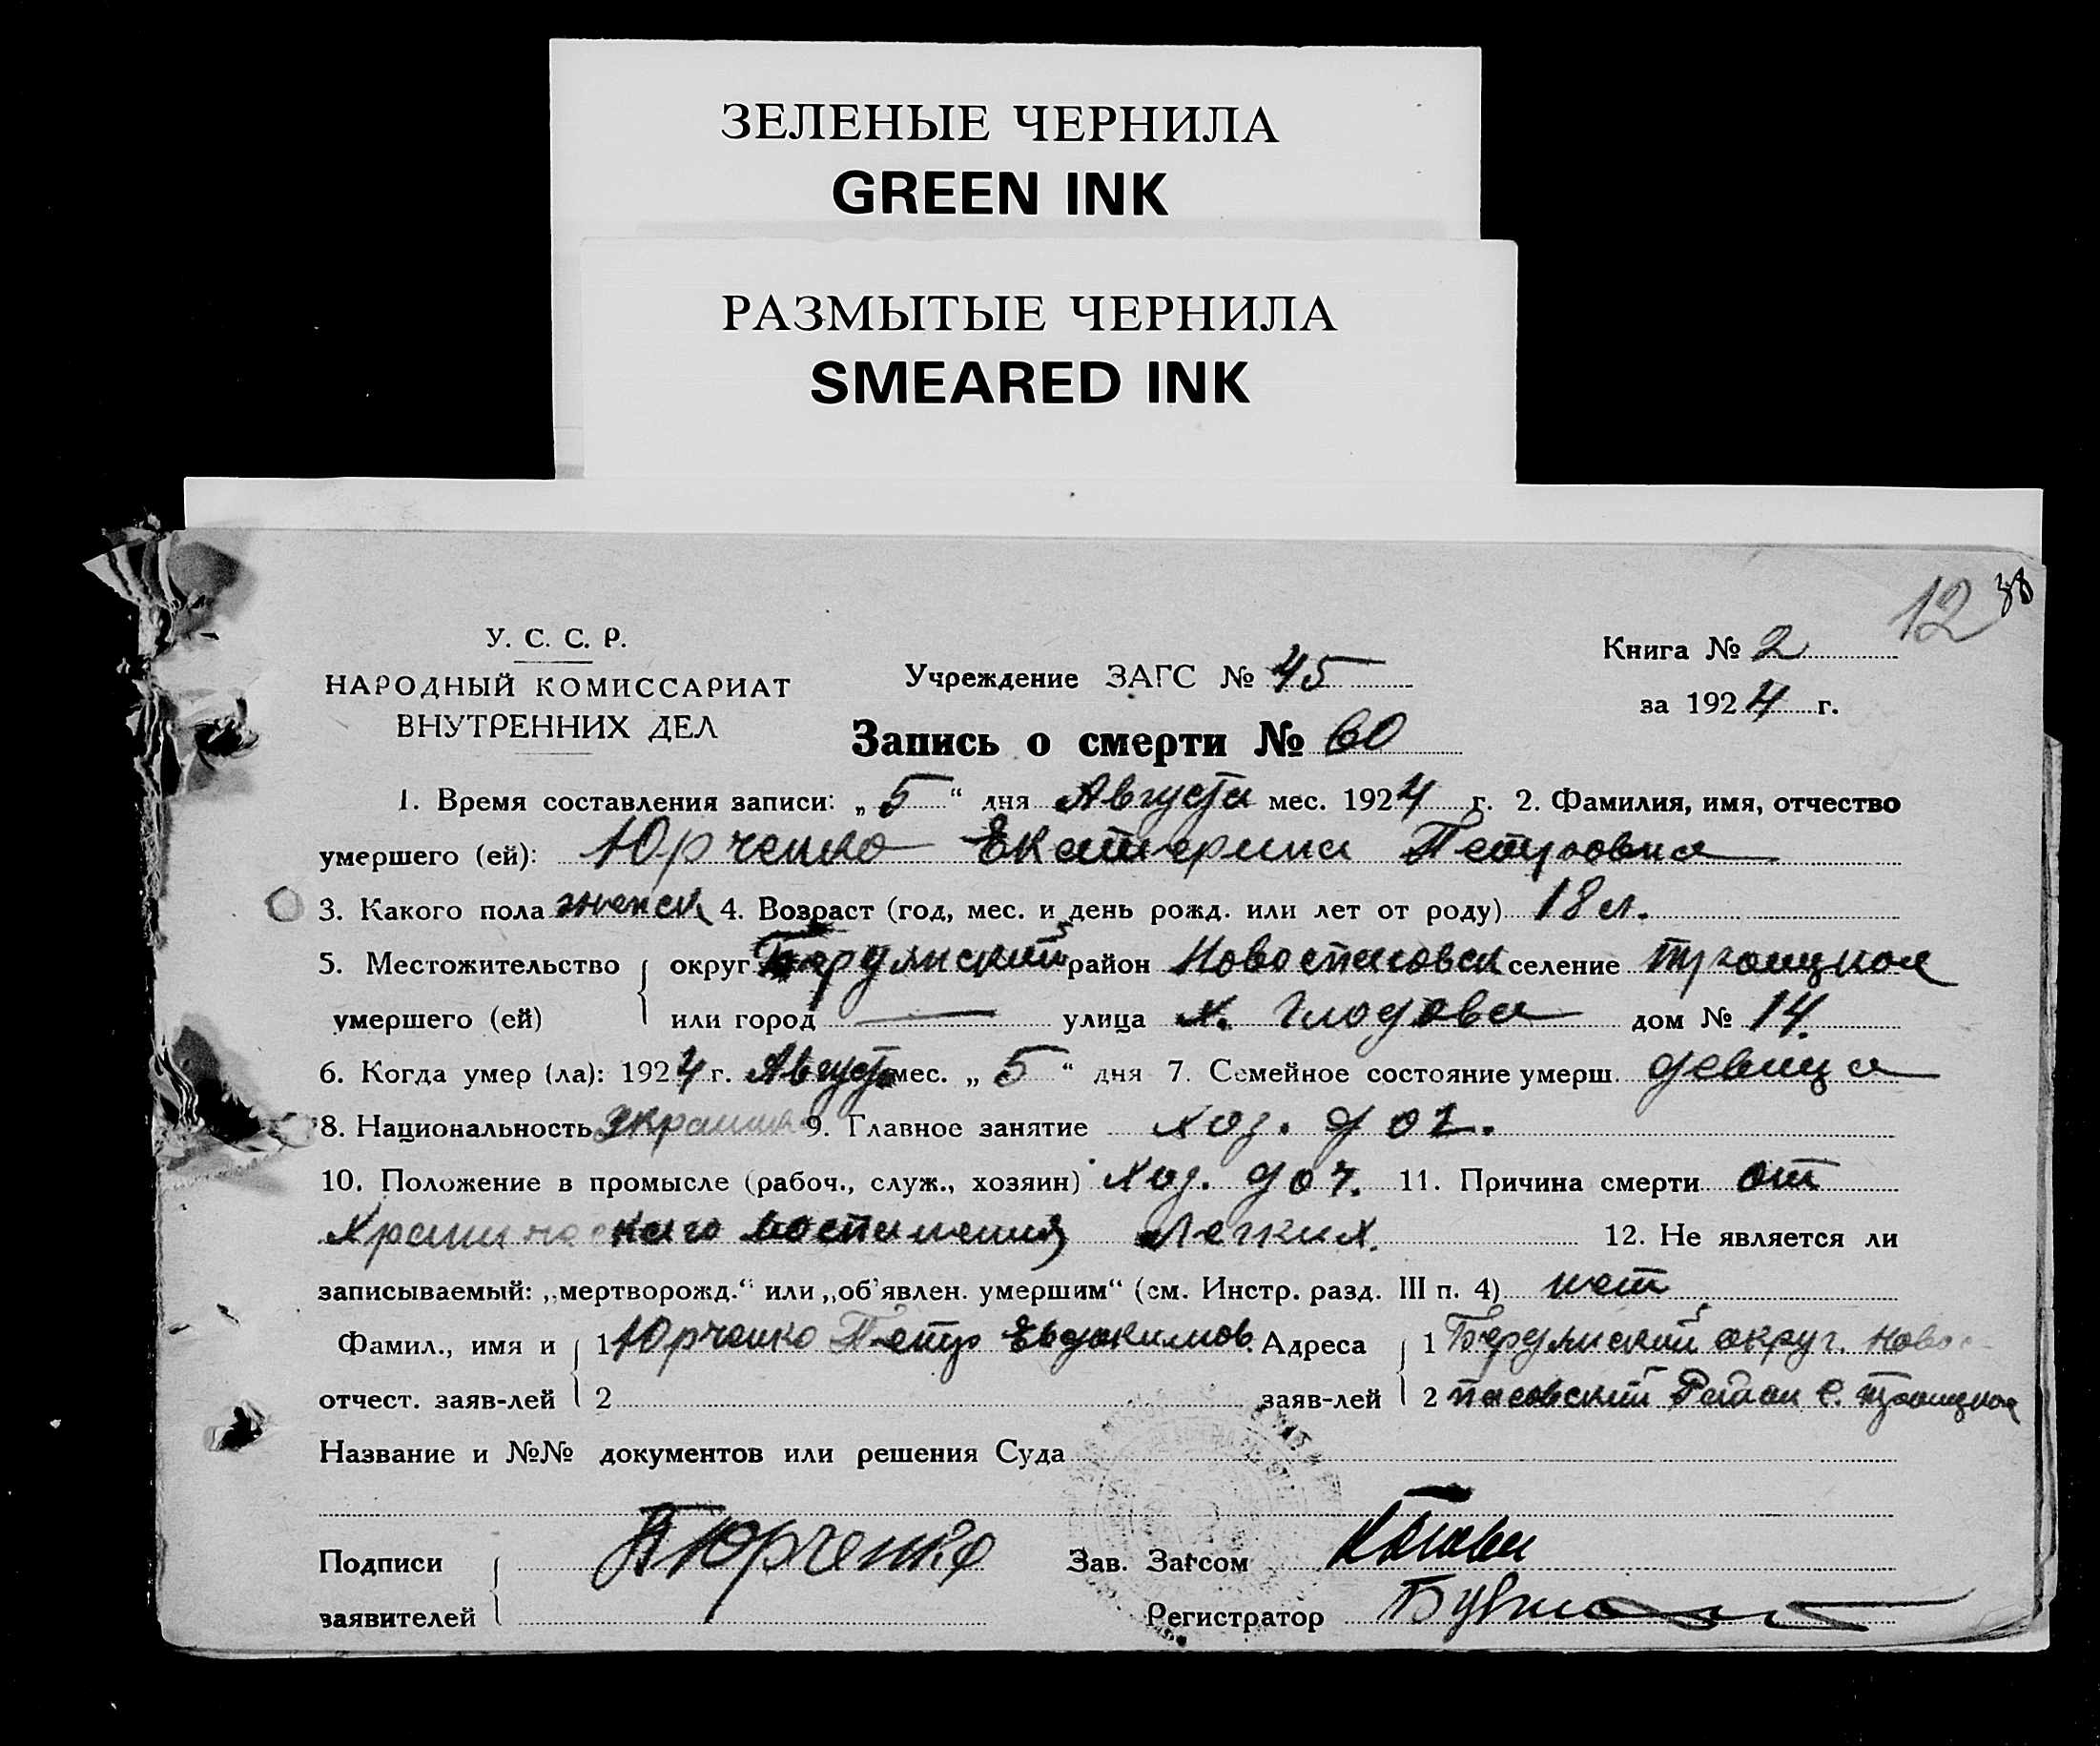 ЗЕЛЕНЫЕ ЧЕРНИЛА
GREEN INK
РАЗМЫТЫЕ ЧЕРНИЛА
SMEARED INK
12 38
У. С. С. Р.
НАРОДНЫЙ КОМИССАРИАТ
ВНУТРЕННИХ ДЕЛ
Учреждение ЗАГС № 45
Книга № 2
за 1924 г.
Запись о смерти № 60
1. Время составления записи: „5“ дня Августа мес. 1924 г. 2. Фамилия, имя, отчество
умершего (ей): Юрченко Екатерина Петровна
3. Какого пола женск 4. Возраст (год, мес. и день рожд. или лет от роду) 18 л.
5. Местожительство округ Бердянский район Новоспасовск селение Троицкое
умершего (ей) или город — улица х. дом № 14.
6. Когда умер (ла): 1924 г. Августа мес. „5“ дня 7. Семейное состояние умерш. девица
8. Национальность 9. Главное занятие хоз. доч.
10. Положение в промысле (рабоч., служ., хозяин) хоз. доч. 11. Причина смерти от
воспаления легких. 12. Не является ли
записываемый: „мертворожд.“ или „об'явлен. умершим“ (см. Инстр. разд. III п. 4) нет
Фамил., имя и 1 Юрченко Петр Евдокимов. Адреса 1 Бердянский округ. Новос-
отчест. заяв-лей 2 заяв-лей 2 пасовский Район с. Троицкое
Название и №№ документов или решения Суда
Подписи П Юрченко Зав. Загсом
заявителей Регистратор